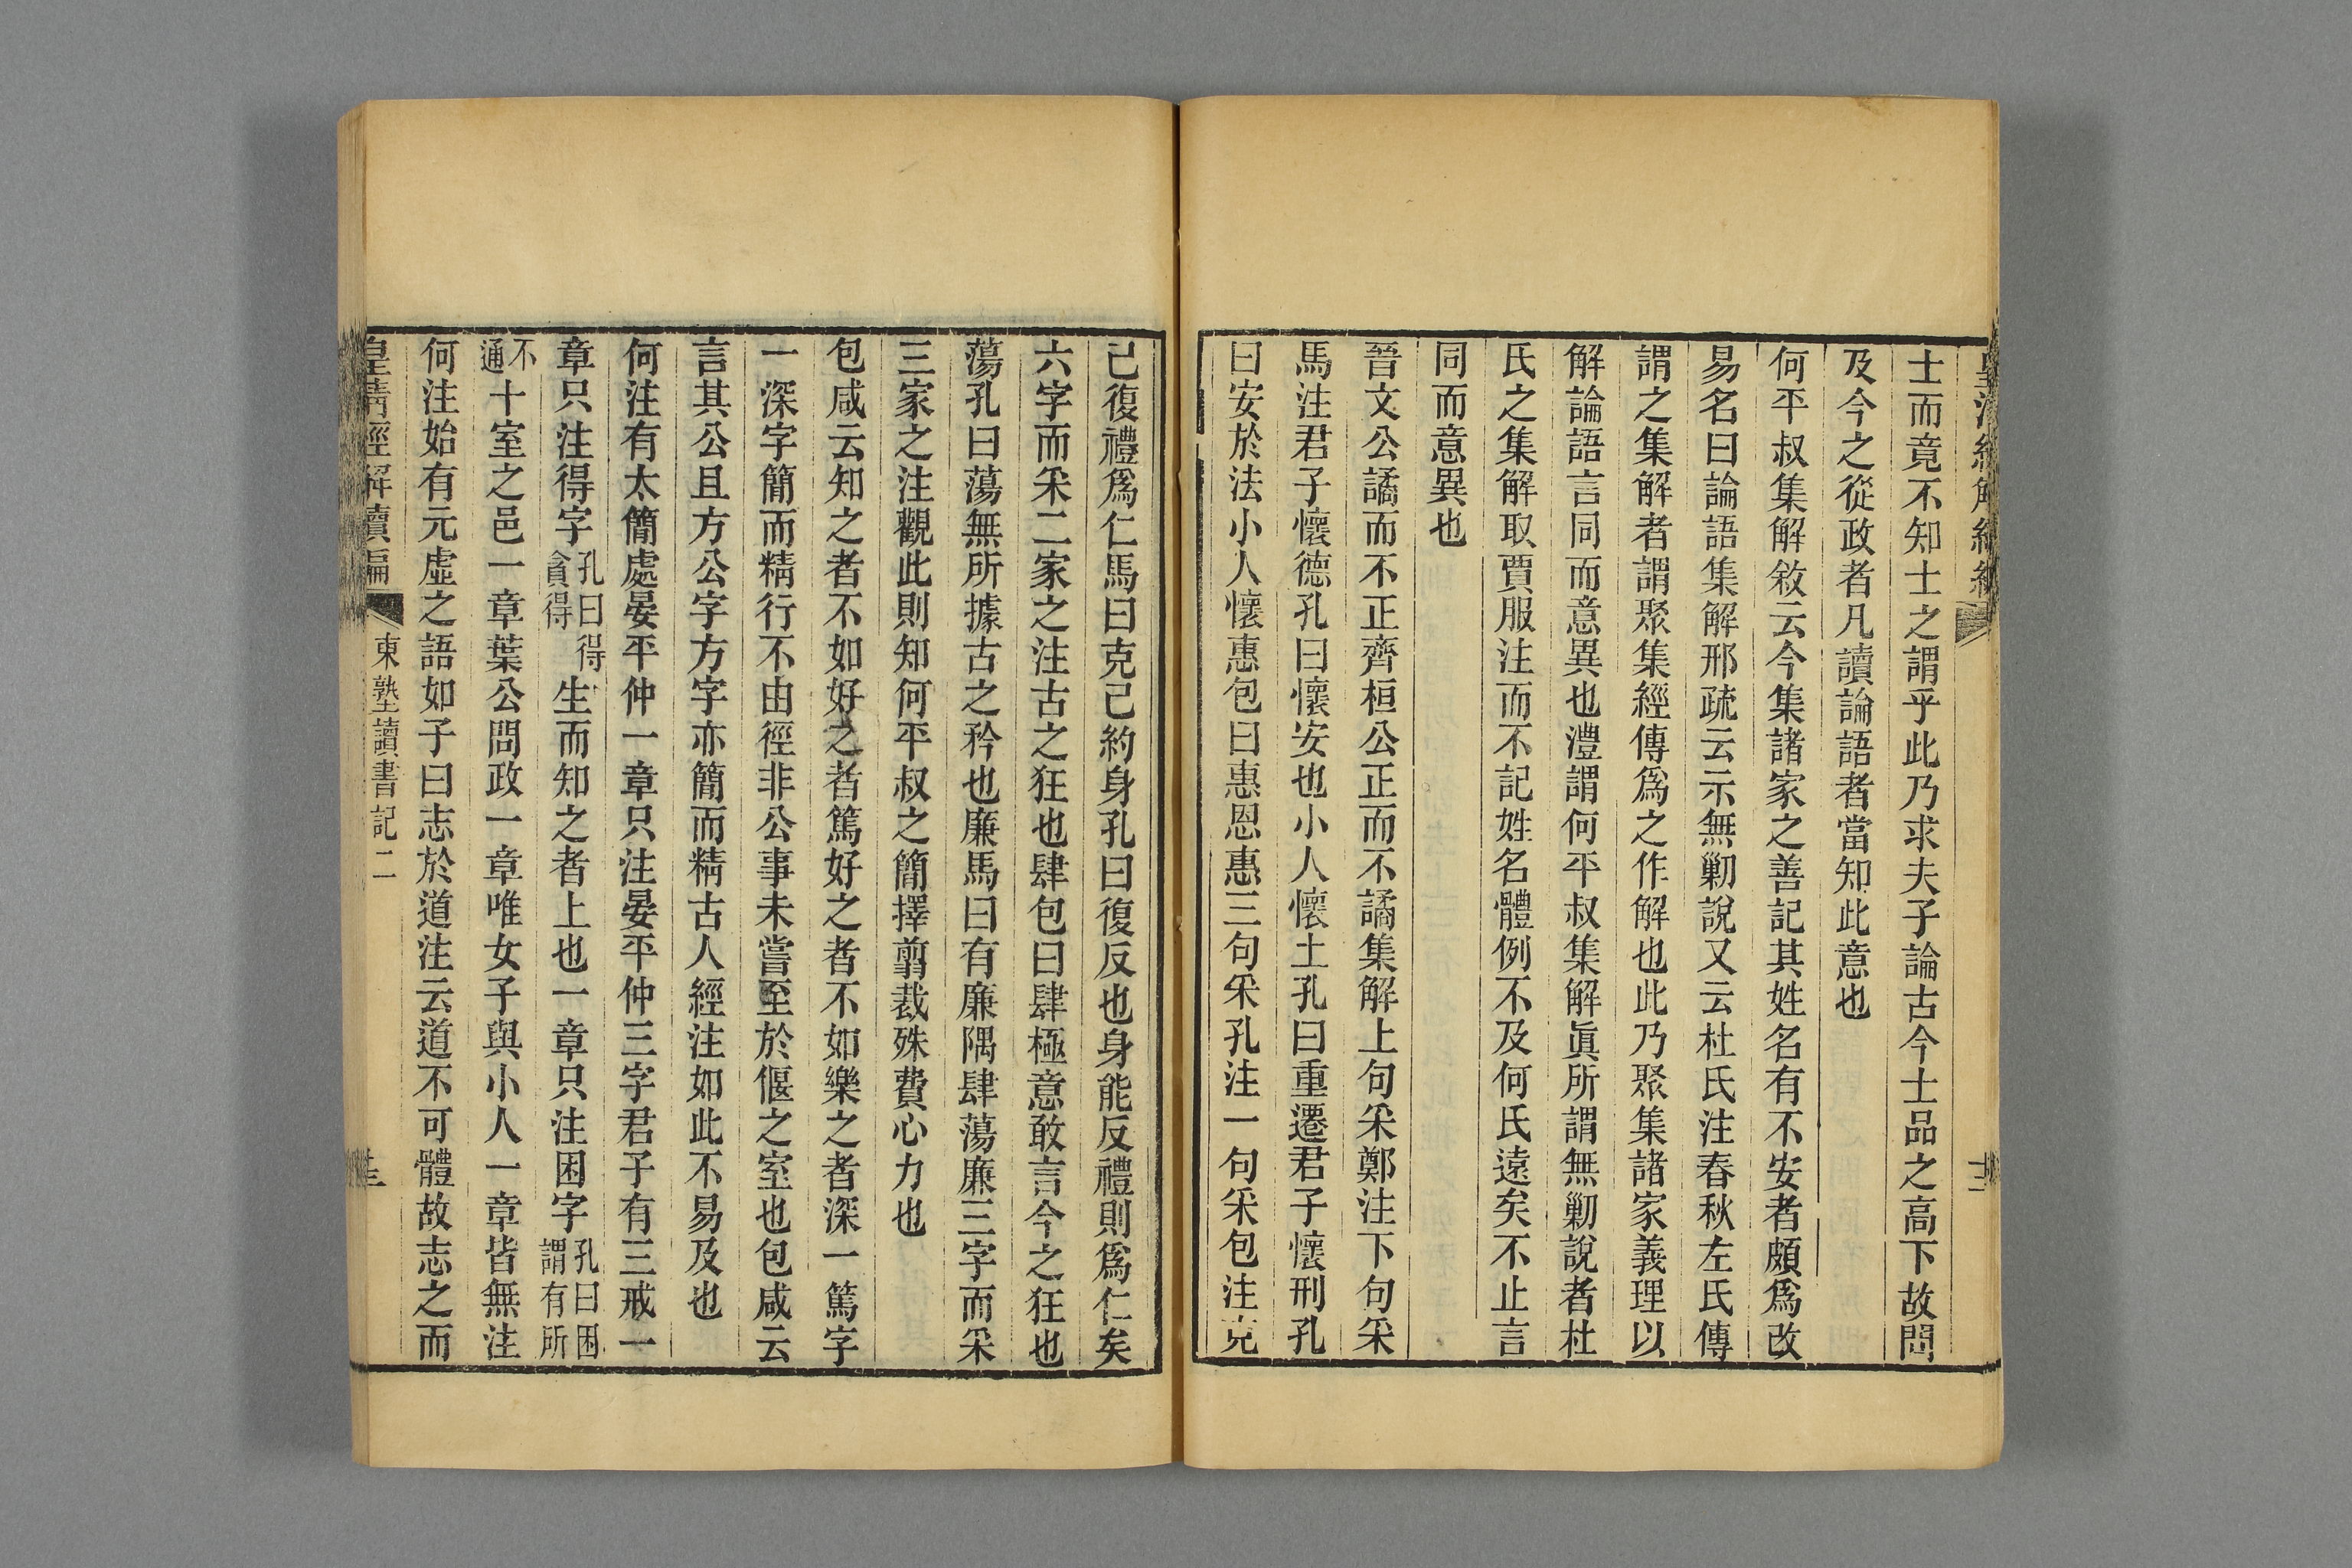 士而竟不知士之謂乎此乃求夫子論古今士品之高下故問
及今之從政者凡讀論語者當知此意也
何平叔集解敘云今集諸家之善記其姓名有不安者頗爲改
易名曰論語集解邢疏云示無勦說又云杜氏注春秋左氏傳
謂之集解者謂聚集經傳爲之作解也此乃聚集諸家義理以
解論語言同而意異也澧謂何平叔集解眞所謂無勦說者杜
氏之集解取賈服注而不記姓名體例不及何氏遠矣不止言
同而意異也
晉文公譎而不正齊桓公正而不譎集解上句采鄭注下句采
馬注君子懷德孔曰懷安也小人懷土孔曰重遷君子懷刑孔
曰安於法小人懷惠包曰惠恩惠三句采孔注一句采包注克
己復禮爲仁馬曰克己約身孔曰復反也身能反禮則爲仁矣
六字而采二家之注古之狂也肆包曰肆極意敢言今之狂也
蕩孔曰蕩無所據古之矜也廉馬曰有廉隅肆蕩廉三字而采
三家之注觀此則知何平叔之簡擇翦裁殊費心力也
包咸云知之者不如好之者篤好之者不如樂之者深一篤字
一深字簡而精行不由徑非公事未嘗至於偃之室也包咸云
言其公且方公字方字亦簡而精古人經注如此不易及也
何注有太簡處晏平仲一章只注晏平仲三字君子有三戒一
章只注得字孔曰得貪得生而知之者上也一章只注困字孔曰困謂有所
不通十室之邑一章葉公問政一章唯女子與小人一章皆無注
何注始有元虛之語如子曰志於道注云道不可體故志之而
皇清經解續編 東塾讀書記二